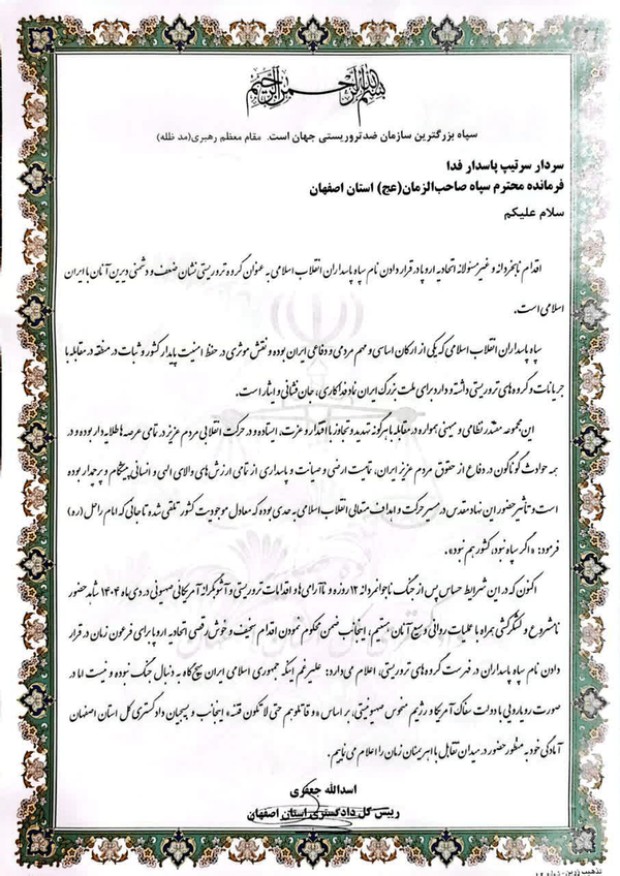 بسم الله الرحمن الرحیم
سپاه بزرگترین سازمان ضدتروریستی جهان است. مقام معظم رهبری(مد ظله)
سردار سرتیپ پاسدار فدا
فرمانده محترم سپاه صاحب‌الزمان(عج) استان اصفهان
سلام علیکم
اقدام نابخردانه و غیرمسئولانه اتحادیه اروپا در قرار دادن نام سپاه پاسداران انقلاب اسلامی به عنوان گروه تروریستی نشان ضعف و دشمنی دیرین آنان با ایران
اسلامی است.
سپاه پاسداران انقلاب اسلامی که یکی از ارکان اساسی و مهم مردمی و دفاعی ایران بوده و نقش موثری در حفظ امنیت پایدار کشور و ثبات در منطقه در مقابله با
جریانات و گروه های تروریستی داشته و دارد برای ملت بزرگ ایران نماد فداکاری، جان فشانی و ایثار است.
این مجموعه مقتدر نظامی و میهنی همواره در مقابله با هرگونه تهدید و تجاوز با اقتدار و عزت، ایستاده و در حرکت انقلابی مردم عزیز در تمامی عرصه ها طلایه‌دار بوده و در
همه حوادث گوناگون در دفاع از حقوق مردم عزیز ایران، تمامیت ارضی و صیانت و پاسداری از تمامی ارزش های والای الهی و انسانی پیشگام و پرچمدار بوده
است و تأثیر حضور این نهاد مقدس در مسیر حرکت و اهداف متعالی انقلاب اسلامی به حدی بوده که معادل موجودیت کشور تلقی شده تا جائی که امام راحل (ره)
فرمود: «اگر سپاه نبود، کشور هم نبود».
اکنون که در این شرایط حساس پس از جنگ ناجوانمردانه ۱۲ روزه و ناآرامی‌ها و اقدامات تروریستی و آشوبگرانه آمریکائی صهیونی در دی ماه ۱۴۰۴ شاهد حضور
نامشروع و لشکرکشی همراه با عملیات روانی وسیع آنان هستیم، اینجانب ضمن محکوم نمودن اقدام سخیف و خوش رقصی اتحادیه اروپا برای فرعون زمان در قرار
دادن نام سپاه پاسداران در فهرست گروه های تروریستی، اعلام می دارد: علیرغم اینکه جمهوری اسلامی ایران هیچ گاه به دنبال جنگ نبوده و نیست اما در
صورت رویارویی با دولت سفاک آمریکا و رژیم منحوس صهیونیستی، بر اساس «و قاتلوهم حتی لا تکون فتنه» اینجانب و بسیجیان دادگستری کل استان اصفهان
آمادگی خود به منظور حضور در میدان تقابل با اهریمنان زمان را اعلام می نماییم.
اسدالله جعفری
رییس کل دادگستری استان اصفهان